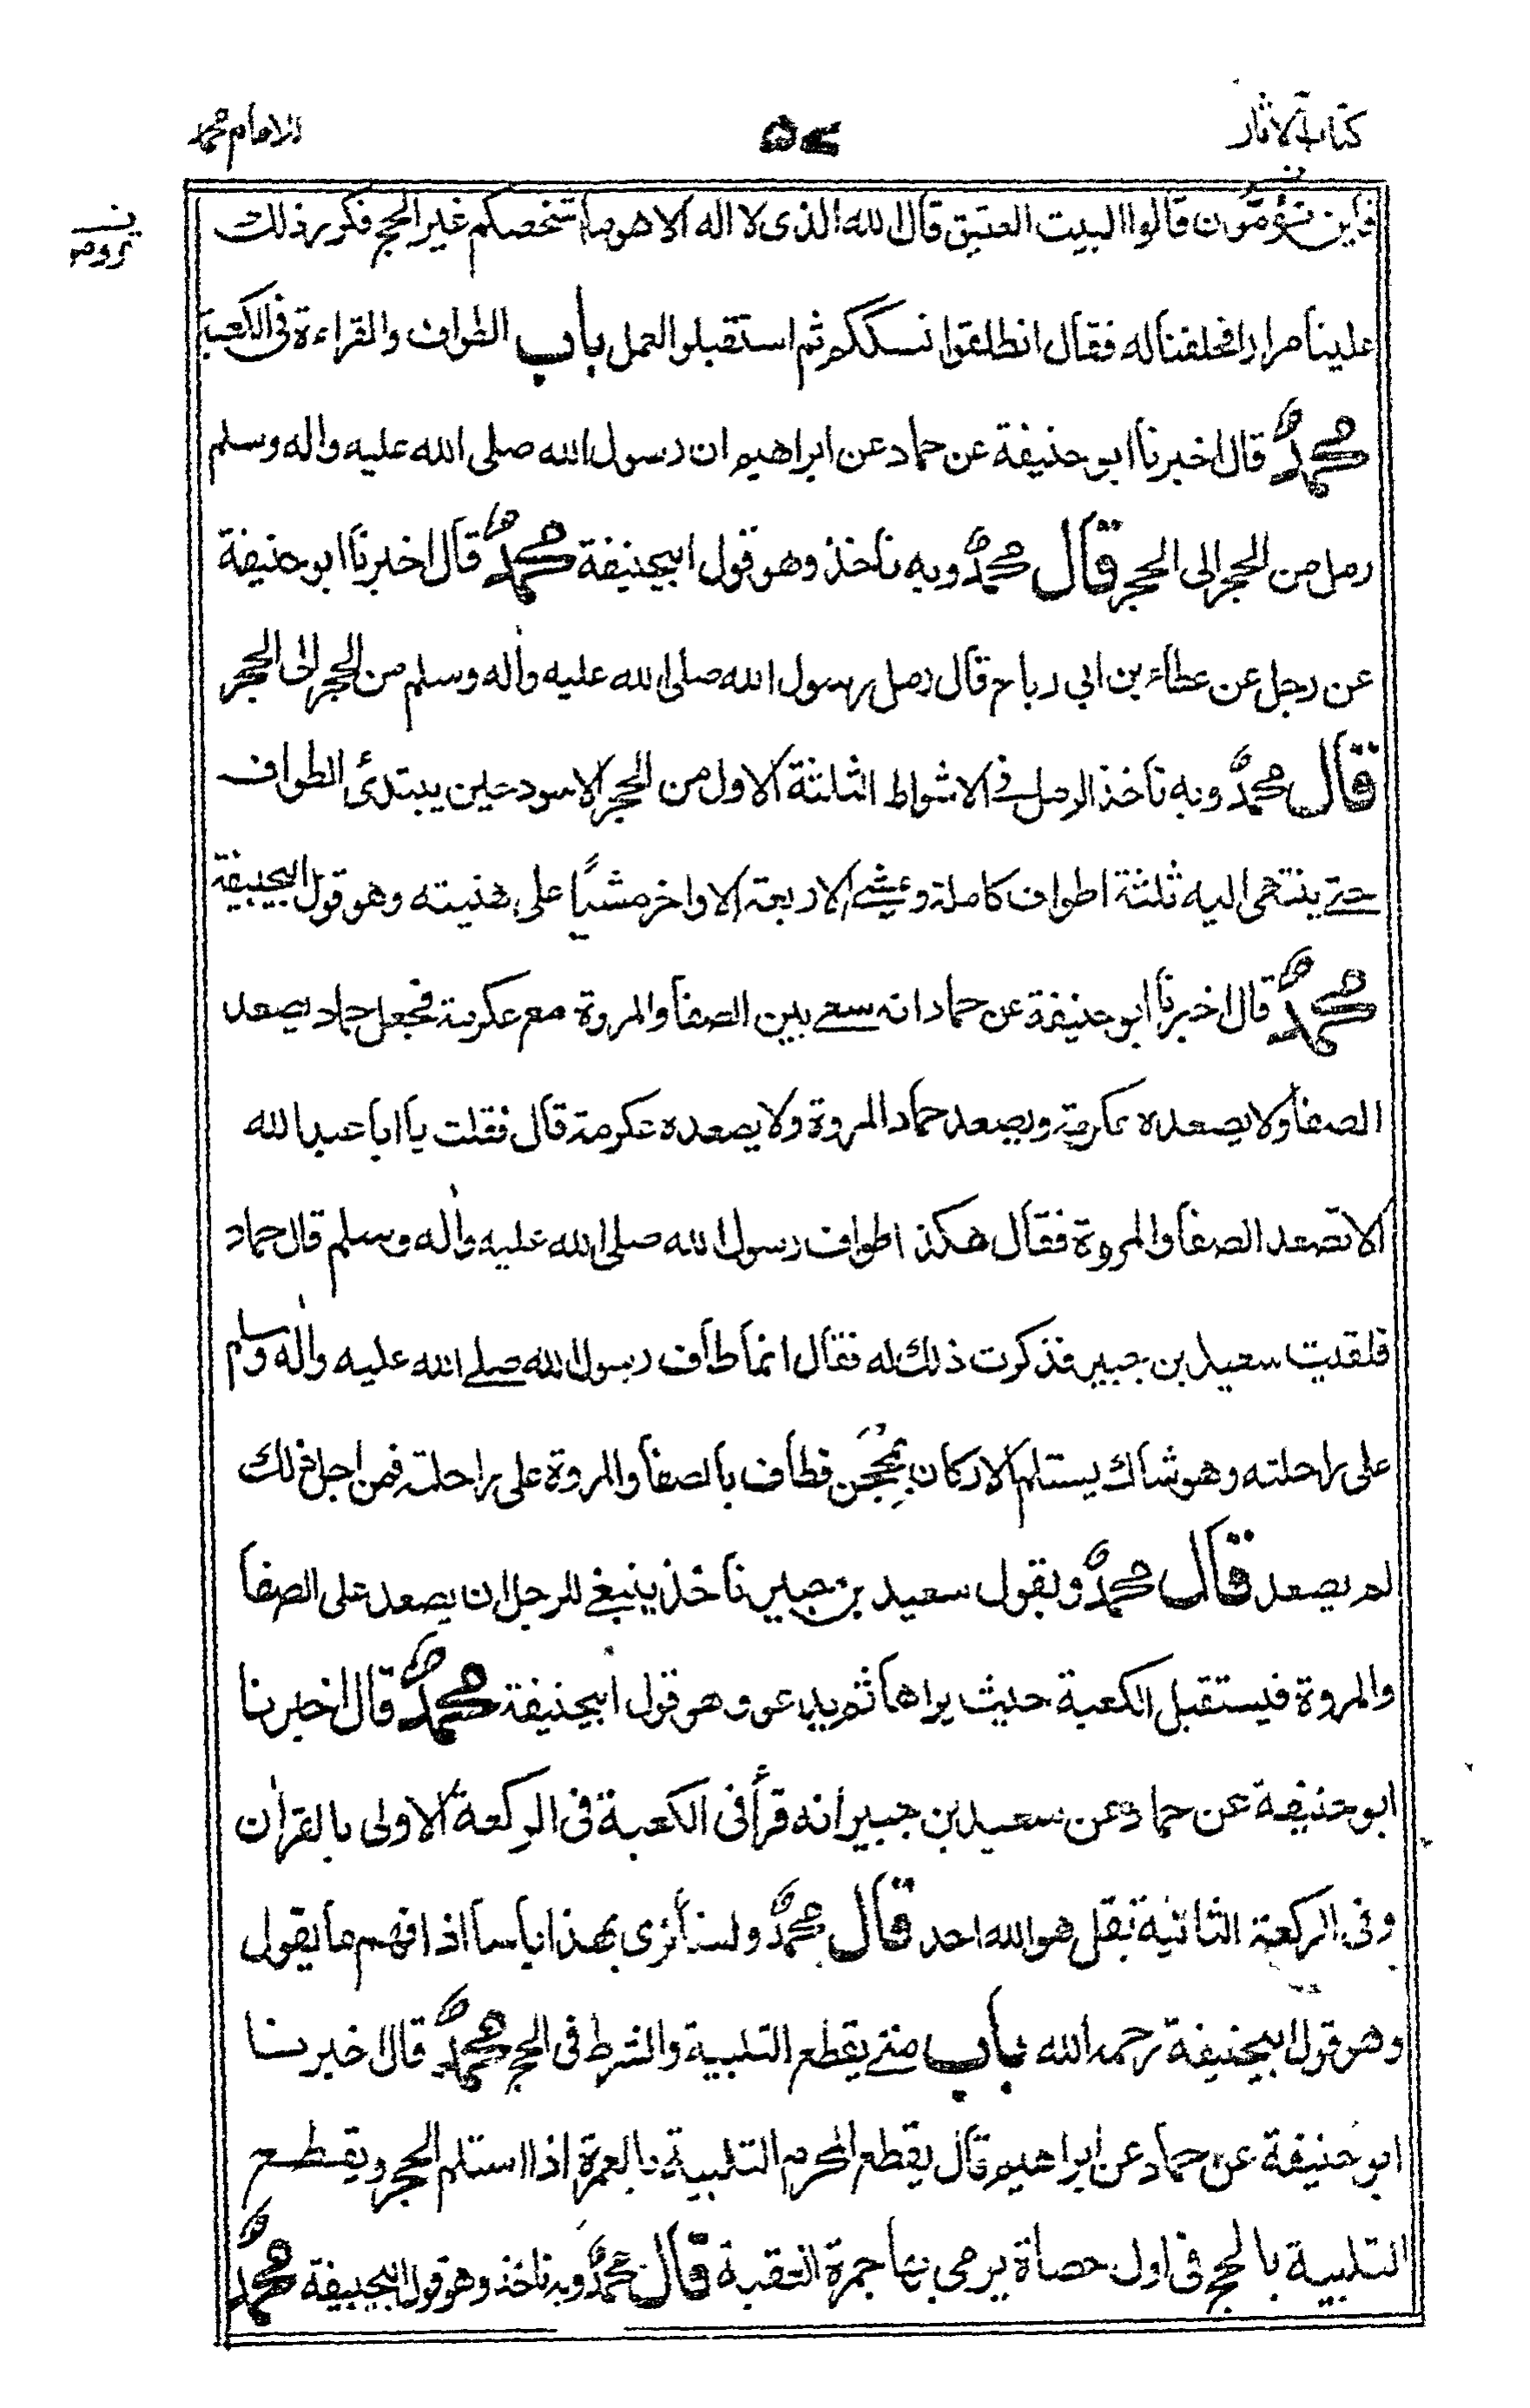 كتاب الاثار ٥٤ للامام محمد
فأين تؤمّون قالوا البيت العتيق قال الله الذى لا اله الا هو ما اشخصكم غير الحج فكرر ذلك
علينا مرارا فحلفنا له فقال انطلقوا نسككم ثم استقبلوا العمل باب الطواف والقراءة فى الكعبة
محمدٌ قال اخبرنا ابو حنيفة عن حماد عن ابراهيم ان رسول الله صلى الله عليه واله وسلم
رمل من الحجر الى الحجر قال محمدٌ وبه نأخذ وهو قول ابيحنيفة محمدٌ قال اخبرنا ابو حنيفة
عن رجل عن عطاء بن ابي رباح قال رمل رسول الله صلى الله عليه واٰله وسلم من الحجر الى الحجر
قال محمدٌ وبه نأخذ الرمل فى الاشواط الثلثة الاول من الحجر الاسود حين يبتدئ الطواف
حتى ينتهى اليه ثلثة اطواف كاملة ويمشى الاربعة الاواخر مشيًا على هنيته وهو قول ابيحنيفة
محمدٌ قال اخبرنا ابو حنيفة عن حماد انه سعى بين الصفا والمروة مع عكرمة فجعل حماد يصعد
الصفا ولا يصعده عكرمة ويصعد حماد المروة ولا يصعده عكرمة قال فقلت يا ابا عبد الله
الا تصعد الصفا والمروة فقال هكذ اطواف رسول الله صلى الله عليه واٰله وسلم قال حماد
فلقيت سعيد بن جبير فذكرت ذلك له فقال انما طاف رسول الله صلى الله عليه واٰله وسلم
على راحلته وهو شاك يستلم الاركان بِمِحْجَن فطاف بالصفا والمروة على راحلته فمن اجل ذلك
لم يصعد قال محمدٌ وبقول سعيد بن جبير نأخذ ينبغى للرجل ان يصعد على الصفا
والمروة فيستقبل الكعبة حيث يراها ثم يدعو وهو قول ابيحنيفة محمدٌ قال اخبرنا
ابو حنيفة عن حماد عن سعيد بن جبير انه قرأ فى الكعبة فى الركعة الاولى بالقراٰن
وفى الركعة الثانية بقل هو الله احد قال محمدٌ ولسنا نرى بهذا باسا اذا فهم ما يقول
وهو قول ابيحنيفة رحمه الله باب متى يقطع التلبية والشرط فى الحج محمدٌ قال اخبرنا
ابو حنيفة عن حماد عن ابراهيم قال يقطع المحرم التلبية بالعمرة اذا استلم الحجر ويقطع
التلبية بالحج فى اول حصاة يرمى بها جمرة العقبة قال محمدٌ وبه نأخذ وهو قول ابيحنيفة محمدٌ